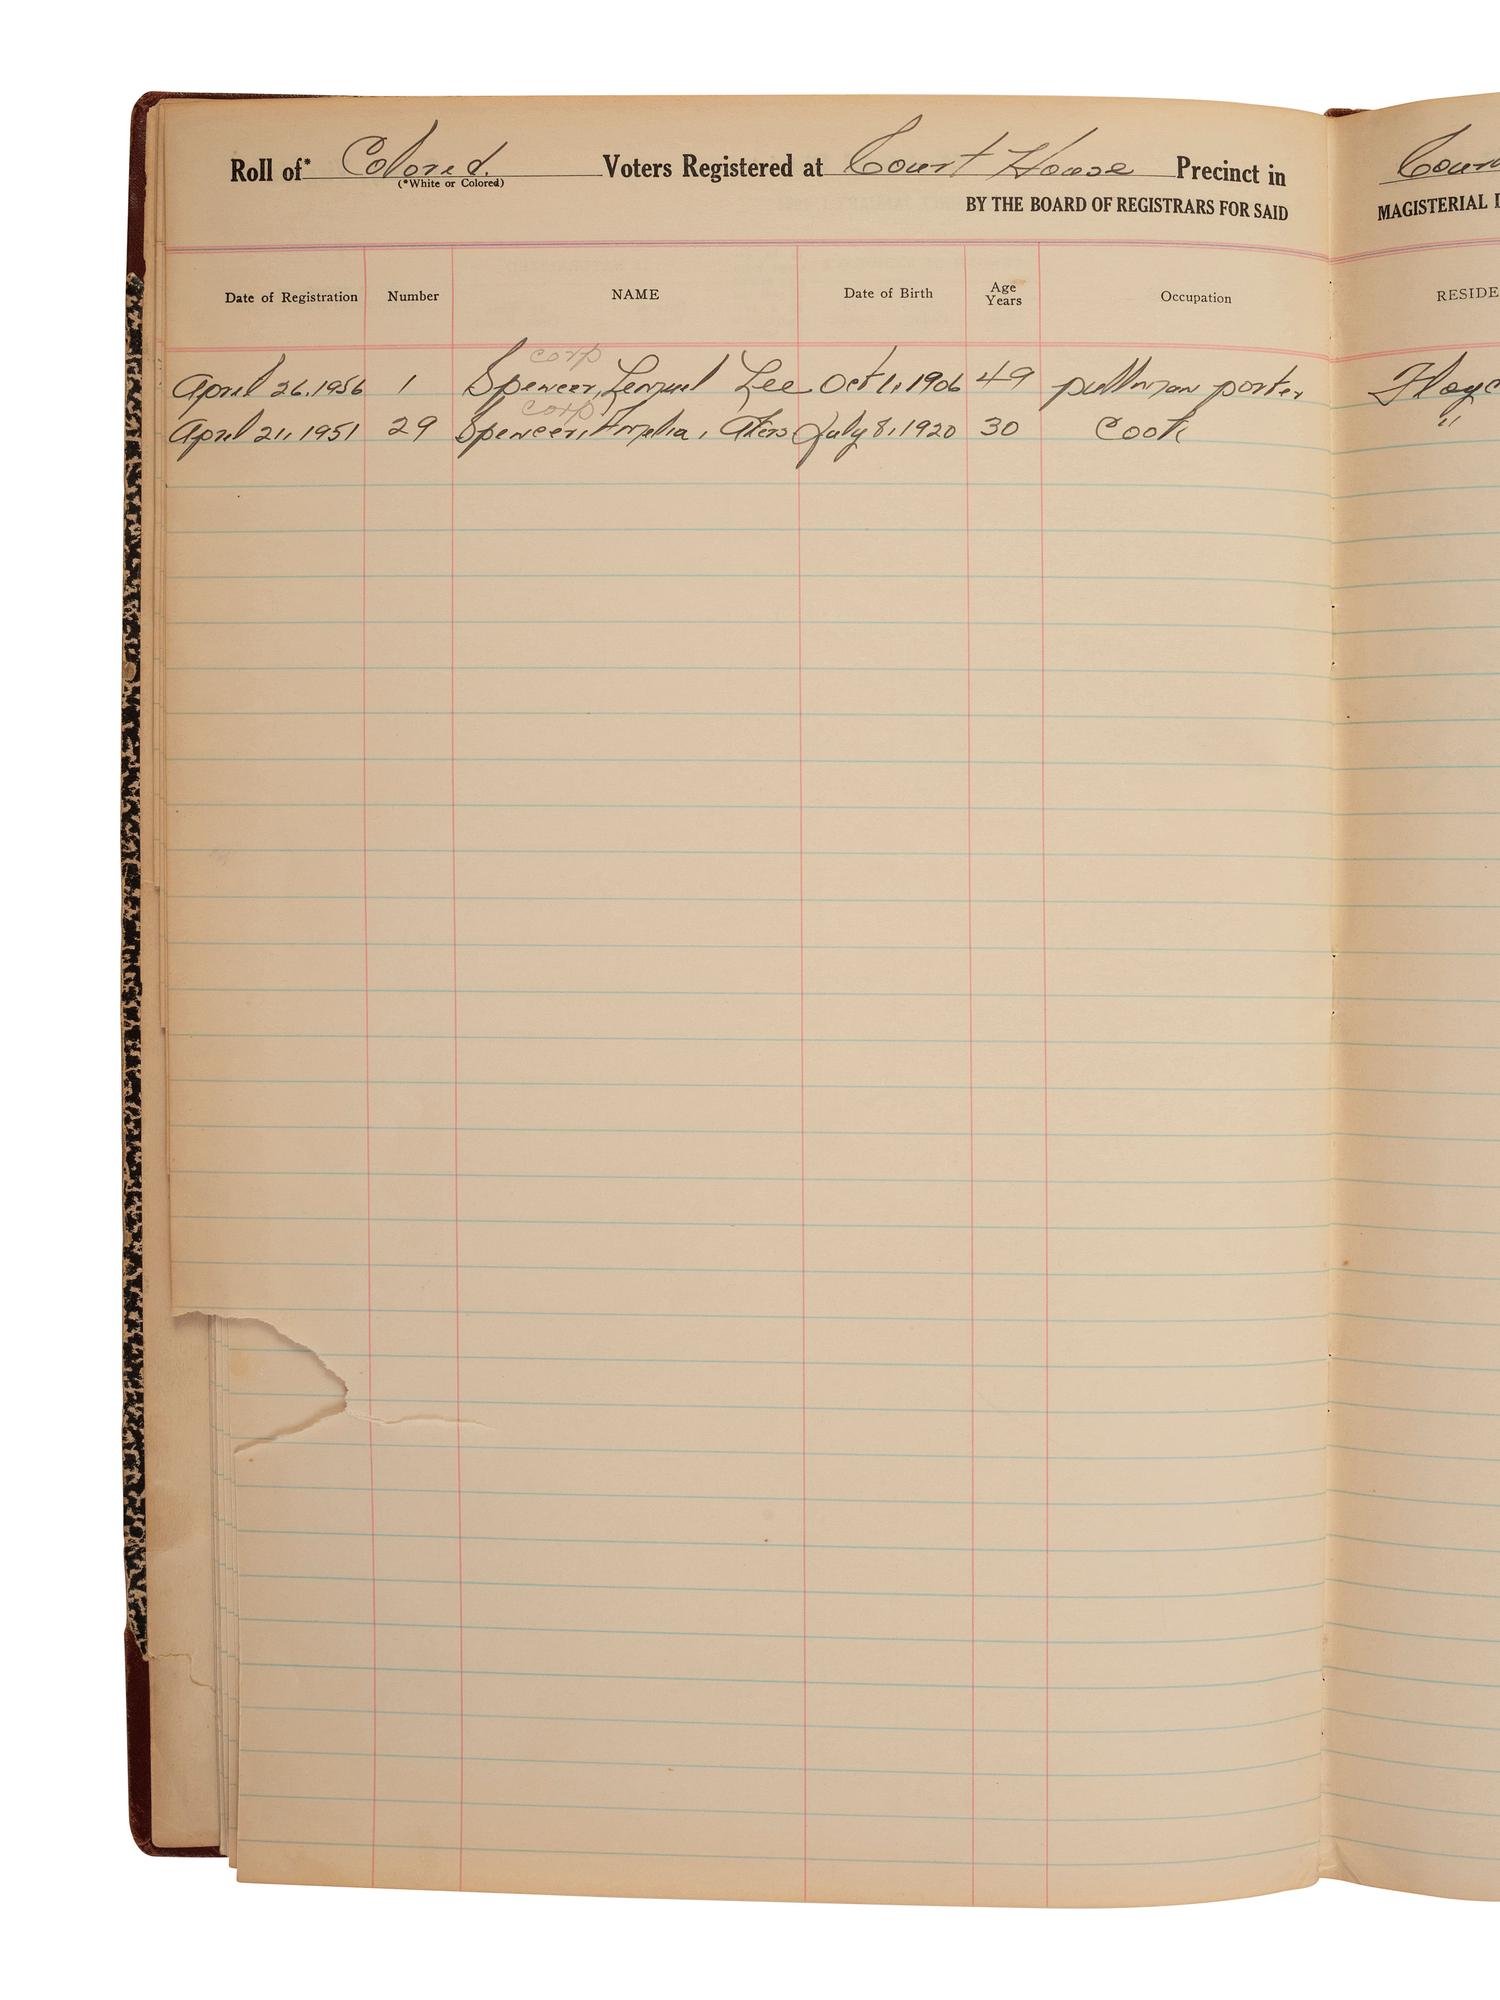 Roll of* Colored. Voters Registered at Court House Precinct in
(*White or Colored)
BY THE BOARD OF REGISTRARS FOR SAID
MAGISTERIAL
Date of Registration Number NAME Date of Birth Age Years Occupation RESIDE
corp
April 26, 1956 1 Spencer, Lemuel Lee Oct 1, 1906 49 pullman porter Floyd
corp
April 21, 1951 29 Spencer, Amelia, Akers July 8, 1920 30 Cook "